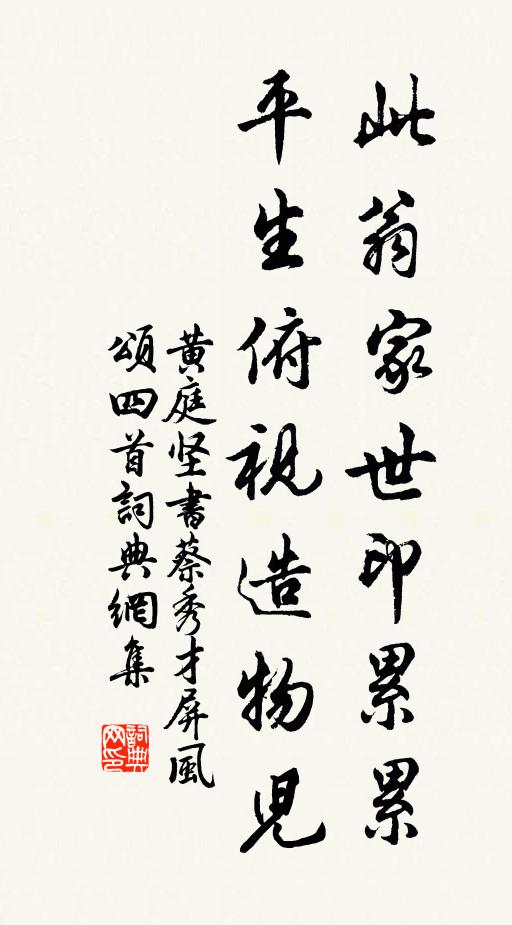 此翁家世印累累
平生俯視造物児
黄庭坚書蔡秀才屏風
頌四首詞典網集
詞典
网印